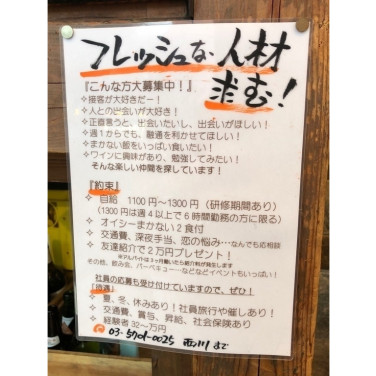 フレッシュな人材
求む!
『こんな方大募集中！』
✧接客が大好きだー！
✧人との出会いが大好き！
✧正直言うと、出会いたいし、出会いがほしい！
✧週１からでも、融通を利かせてほしい！
✧まかない飯をいっぱい食いたい！
✧ワインに興味があり、勉強してみたい！
そんな楽しい仲間を探しています！
『約束』
✧自給 1100円～1300円（研修期間あり）
（1300円は週４以上で６時間勤務の方に限る）
✧オイシーまかない２食付
✧交通費、深夜手当、恋の悩み…なんでも応相談
✧友達紹介で２万円プレゼント！
※アルバイトは３ヶ月働いたら紹介料が発生します
その他、飲み会、バーベキュー…などなどイベントもいっぱい！
社員の応募も受け付けていますので、ぜひ！
『待遇』
✧夏、冬、休みあり！社員旅行や催しあり！
✧交通費、賞与、昇給、社会保険あり
✧経験者32～万円
03-5701-0025 西川まで